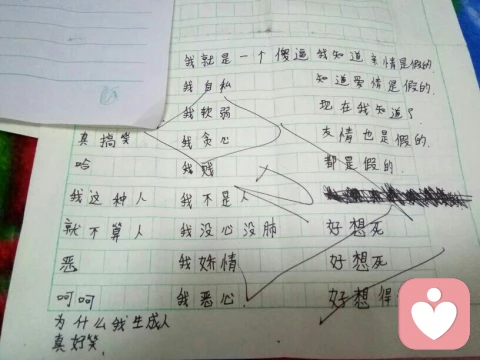 我就是一个傻逼 我知道亲情是假的.
我自私 知道爱情是假的.
我软弱 现在我知道了
真搞笑 我贪心 友情也是假的.
哈 我贱 都是假的.
我这种人 我不是人
就不算人 我没心没肺 好想死
恶 我矫情 好想死
呵呵 我恶心 好想得
为什么我生成人
真好笑.